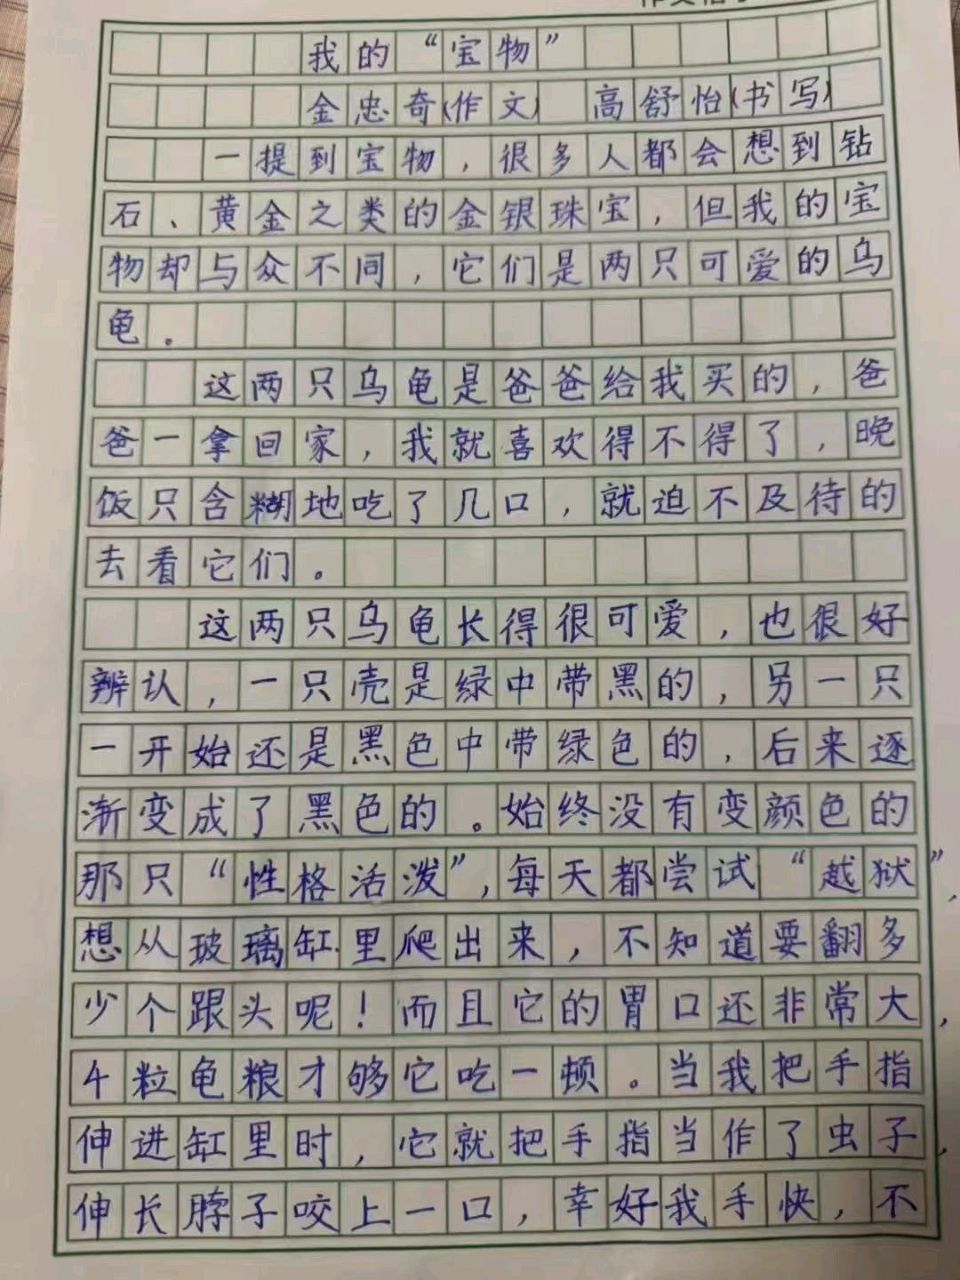 我的“宝物”
金忠奇(作文) 高舒怡(书写)
一提到宝物，很多人都会想到钻
石、黄金之类的金银珠宝，但我的宝
物却与众不同，它们是两只可爱的乌
龟。
这两只乌龟是爸爸给我买的，爸
爸一拿回家，我就喜欢得不得了，晚
饭只含糊地吃了几口，就迫不及待的
去看它们。
这两只乌龟长得很可爱，也很好
辨认，一只壳是绿中带黑的，另一只
一开始还是黑色中带绿色的，后来逐
渐变成了黑色的。始终没有变颜色的
那只“性格活泼”，每天都尝试“越狱”，
想从玻璃缸里爬出来，不知道要翻多
少个跟头呢！而且它的胃口还非常大，
4粒龟粮才够它吃一顿。当我把手指
伸进缸里时，它就把手指当作了虫子，
伸长脖子咬上一口，幸好我手快，不